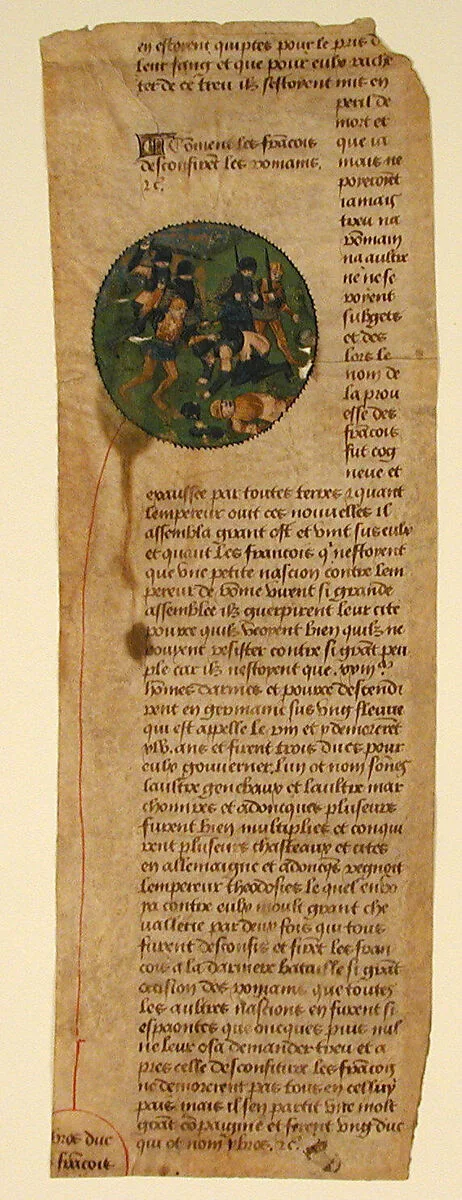 en estoyent quiptes pour le pris d
leur sang et que pour eulx rache
ter de ce treu ilz sestoyent mis en
peril de
mort et
que ia
mais ne
poyeroiēt
iamais
treu na
rōmain
na aultre
ne ne se
royent
subgets
et des
lors le
nom de
la prou
esse des
frācois
fut cog
neue et
Cōment les frācois
desconfirēt les romains.
⁊c.
exaussee par toutes terres ⁊ quant
lempereur ouit ces nouvelles il
assembla grant ost et vint sus eulx
et quant les francois q' nestoyent
que vne petite nascion contre lem
pereur de rōme virent si grande
assemblee ilz guerpirent leur cite
pource quilz veoyent bien quilz ne
pouyent resister contre si grāt peu
ple car ilz nestoyent que .xxiii.
hōmes darmes et pource descendi
rent en germanie sus vng fleuue
qui est appelle le rin et y demorerēt
ans et firent trois ducs pour
eulx gouverner. lun ot nom
laultre genebaux et laultre mar
chomires et adoncques pluseurs
furent bien multiplies et conqui
rent pluseurs chasteaux et cites
en allemaigne et adoncqs regnoit
lempereur theodosies le quel enuo
ya contre eulx moult grant che
vallerie par deux fois qui tous
furent desconfis et firēt les fran
cois a la darniere bataille si grāt
occision des romains que toutes
les aultres nascions en furent si
espaontes que oncques puis nul
ne leur osa demander treu et a
pres celle desconfiture les frācois
ne demorerent pas tous en celluy
pais mais il sen partit vne molt
grāt cōpaignie et firent vng duc
qui ot nom ybros. ⁊c.
bros duc
frācois